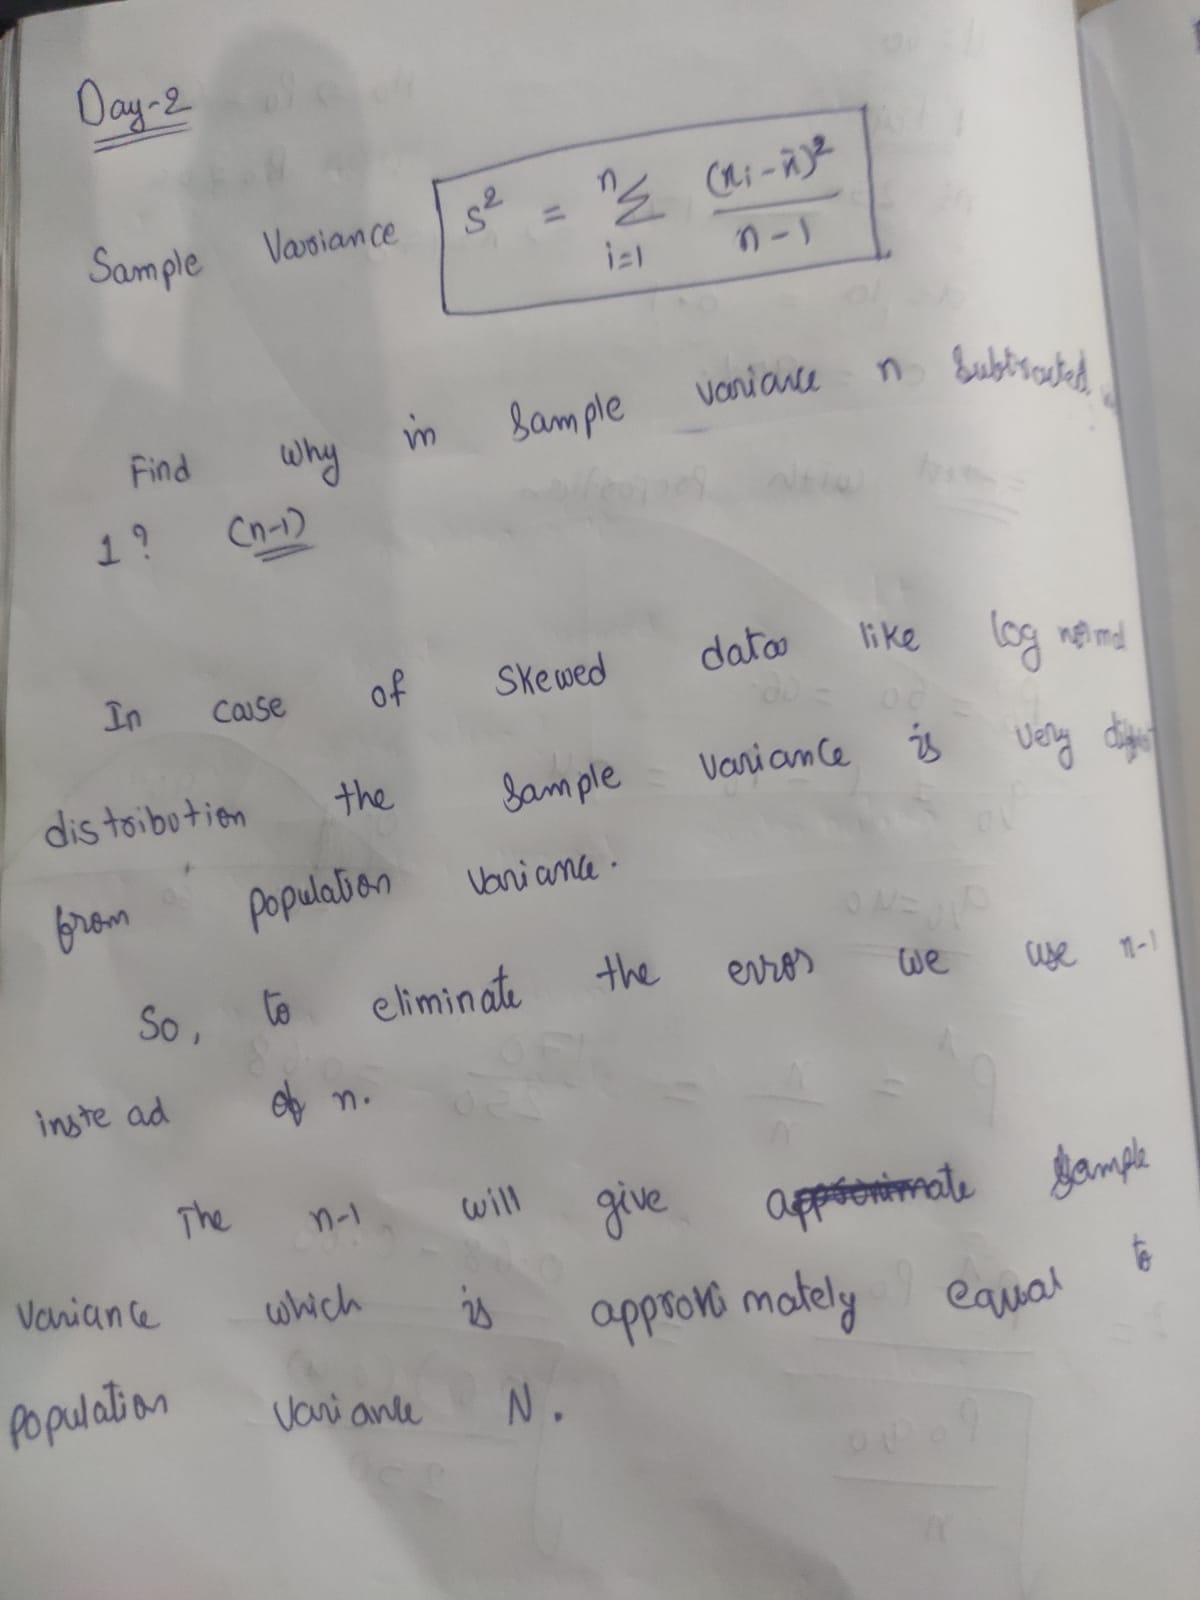 Day-2
Sample Variance s² = n Σ i=1 (xi - x̄)² / n-1
Find why in Sample variance n Subtracted
1? (n-1)
In case of Skewed data like log normal
distribution the Sample variance is very
from population variance.
So, to eliminate the error we use n-1
instead of n.
The n-1 will give approximate Sample
variance which is approximately equal to
population variance N.